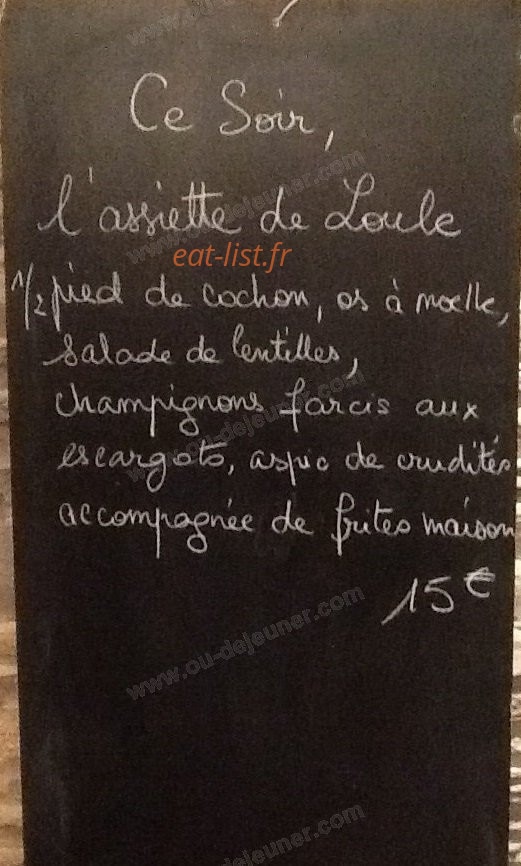 www.ou-dejeuner.com
Ce Soir,
www.ou-dejeuner.com
l'assiette de Loule
www.ou-dejeuner.com
eat-list.fr
1/2 pied de cochon, os à moelle,
salade de lentilles,
champignons farcis aux
www.ou-dejeuner.com
escargots, aspic de crudités
accompagnée de frites maison
15€
www.ou-dejeuner.com
www.ou-dejeuner.com